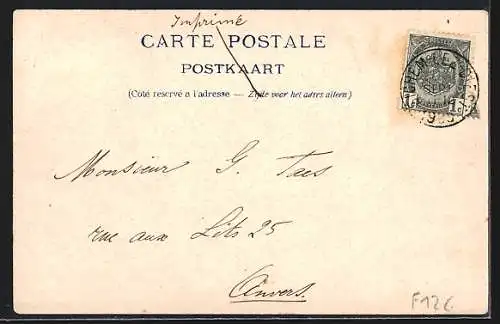 Imprimé
CARTE POSTALE
POSTKAART
(Côté reservé a l'adresse — Zijde voor het adres alleen)
1c 1c
Monsieur G. Taes
rue aux Lits 25
Anvers.
F12C